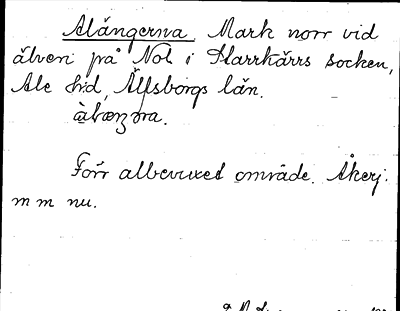 Alängerna Mark norr vid
älven på Nol i Starrkärrs socken,
Ale hd, Älfsborgs län.
Förr albevuxet område. Åkerj.
m m nu.